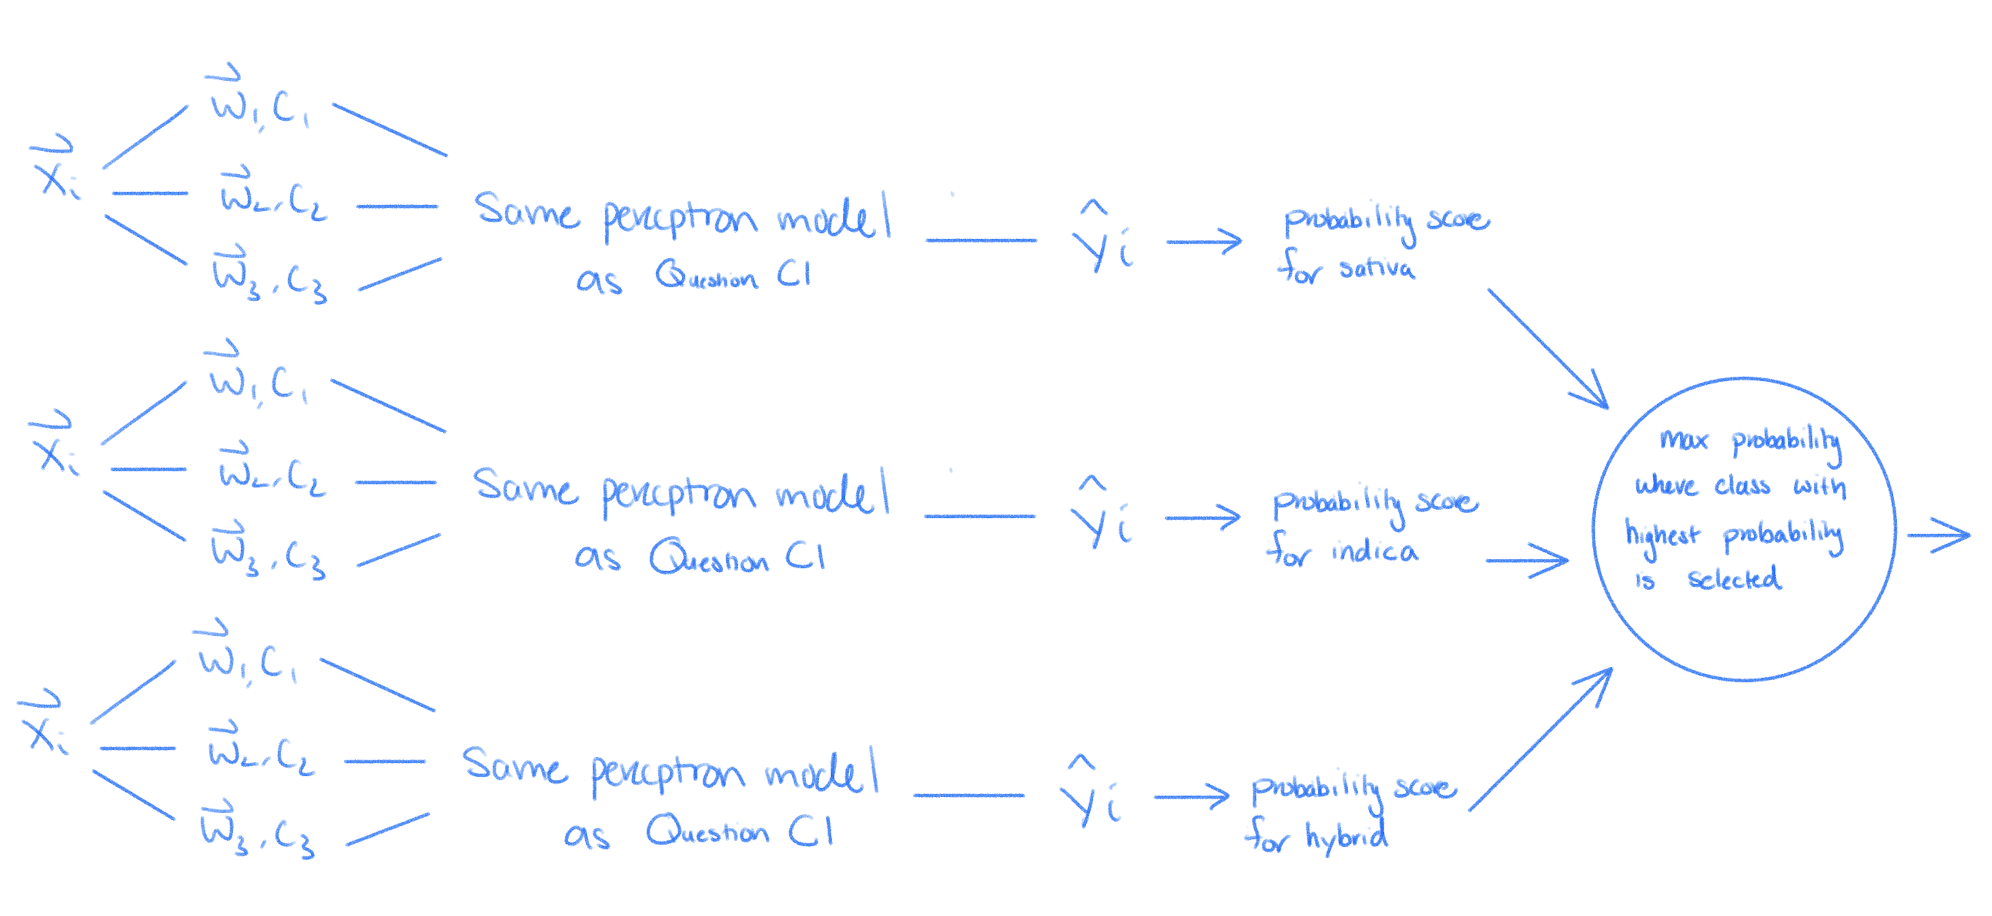 x⃗ᵢ
w⃗₁, c₁
w⃗₂, c₂
w⃗₃, c₃
Same perceptron model
as Question C1
ŷᵢ
probability score
for sativa
x⃗ᵢ
w⃗₁, c₁
w⃗₂, c₂
w⃗₃, c₃
Same perceptron model
as Question C1
ŷᵢ
probability score
for indica
x⃗ᵢ
w⃗₁, c₁
w⃗₂, c₂
w⃗₃, c₃
Same perceptron model
as Question C1
ŷᵢ
probability score
for hybrid
max probability
where class with
highest probability
is selected